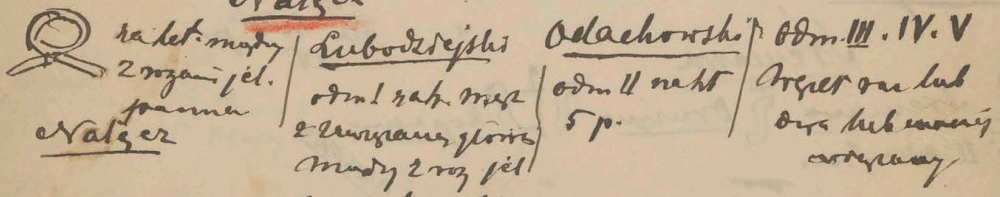 Nałęcz
na heł. między
2 rogami jel.
panna
Nałęcz
Lubodziejski
odm. I na h. męż
z zawiązaną głową
między 2 rog jel
Odachowski
odm II na hł
5 p.
Odm. III. IV. V
węzeł raz lub
dwa lub